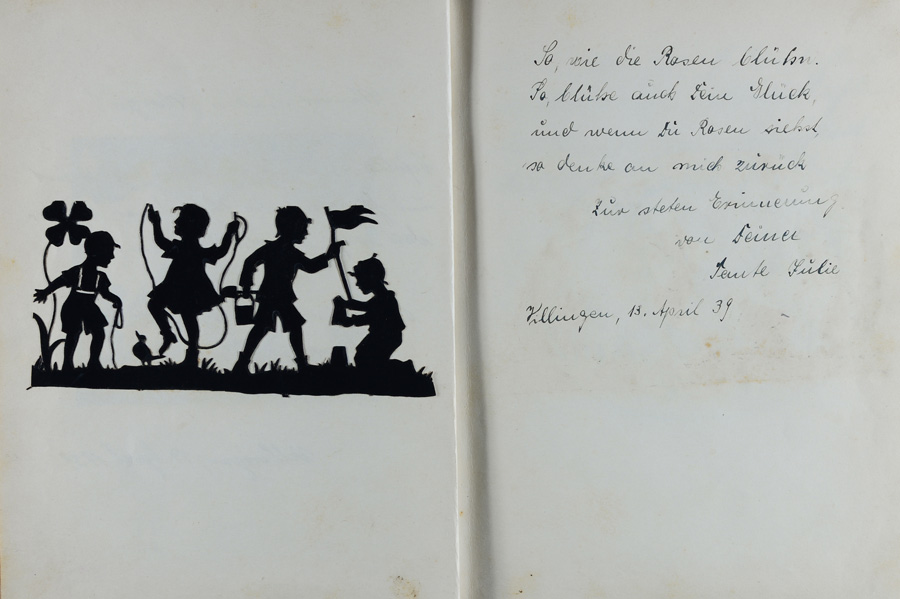 So, wie die Rosen blühn.
So, blühe auch Dein Glück,
und wenn Du Rosen siehst,
so denke an mich zurück
Zur steten Erinnerung
von Deiner
Tante Julie
Illingen, 13. April 39